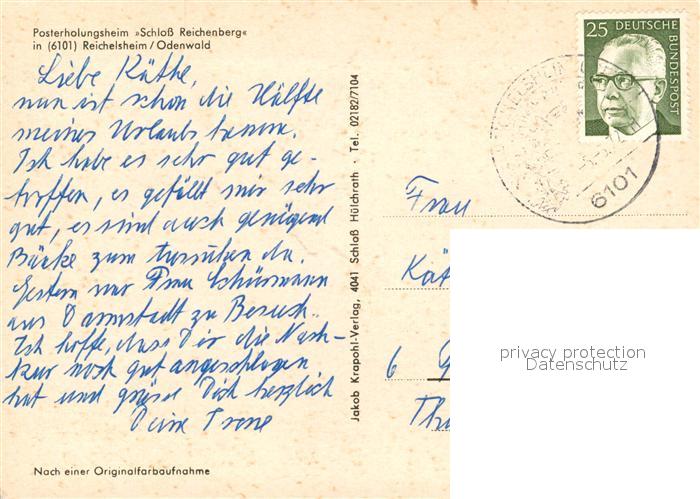 Posterholungsheim »Schloß Reichenberg«
in (6101) Reichelsheim/Odenwald
Liebe Käthe,
nun ist schon die Hälfte
meines Urlaubs herum.
Ich habe es sehr gut ge-
troffen, es gefällt mir sehr
gut, es sind auch genügend
Bänke zum ausruhen da.
Gestern war Frau Schürmann
aus Darmstadt zu Besuch.
Ich hoffe, dass Dir die Nach-
kur noch gut angeschlagen
hat und grüsse Dich herzlich
Deine Irene
Nach einer Originalfarbaufnahme
Jakob Krapohl-Verlag, 4041 Schloß Hülchrath · Tel. 02182/7104
25 DEUTSCHE
BUNDESPOST
6101
Frau
Kät
6
privacy protection
Datenschutz